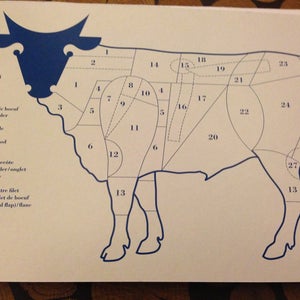 1
2
14
15
18
19
23
21
1
4
7
8
10
9
4
16
17
3
5
11
20
22
24
6
12
6
13
13
27
de boeuf
der
le
od
der/onglet
tre filet
let de boeuf
d flap)/flanc